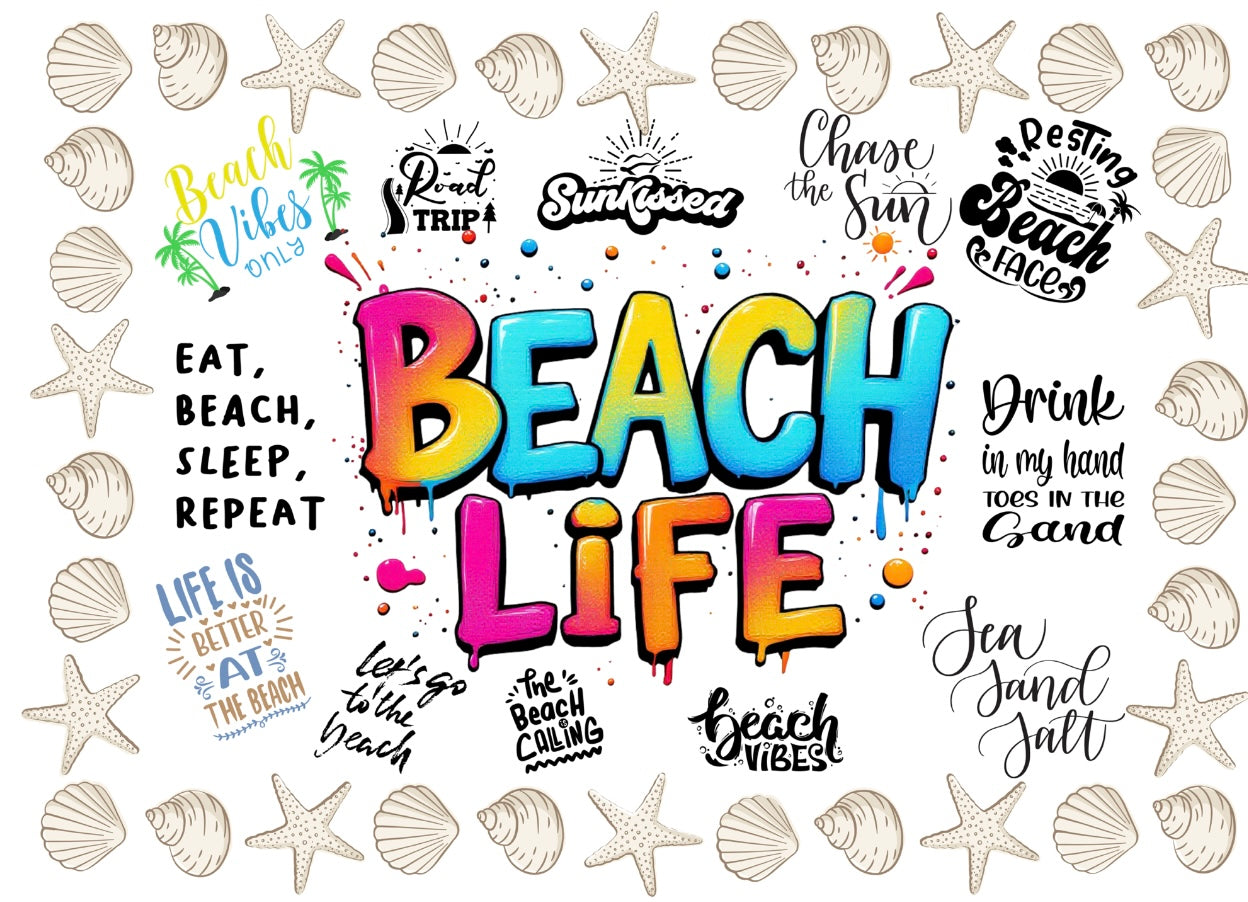 Beach
Vibes
ONLY
Road
TRIP
SunKissed
Chase
the Sun
Resting
Beach
FACE
BEACH
LiFE
EAT,
BEACH,
SLEEP,
REPEAT
Drink
in my hand
TOES IN THE
Sand
LIFE IS
BETTER
AT
THE BEACH
let's go
to the
beach
The
BeacH
is
CALLING
beach
ViBES
Sea
Sand
Salt